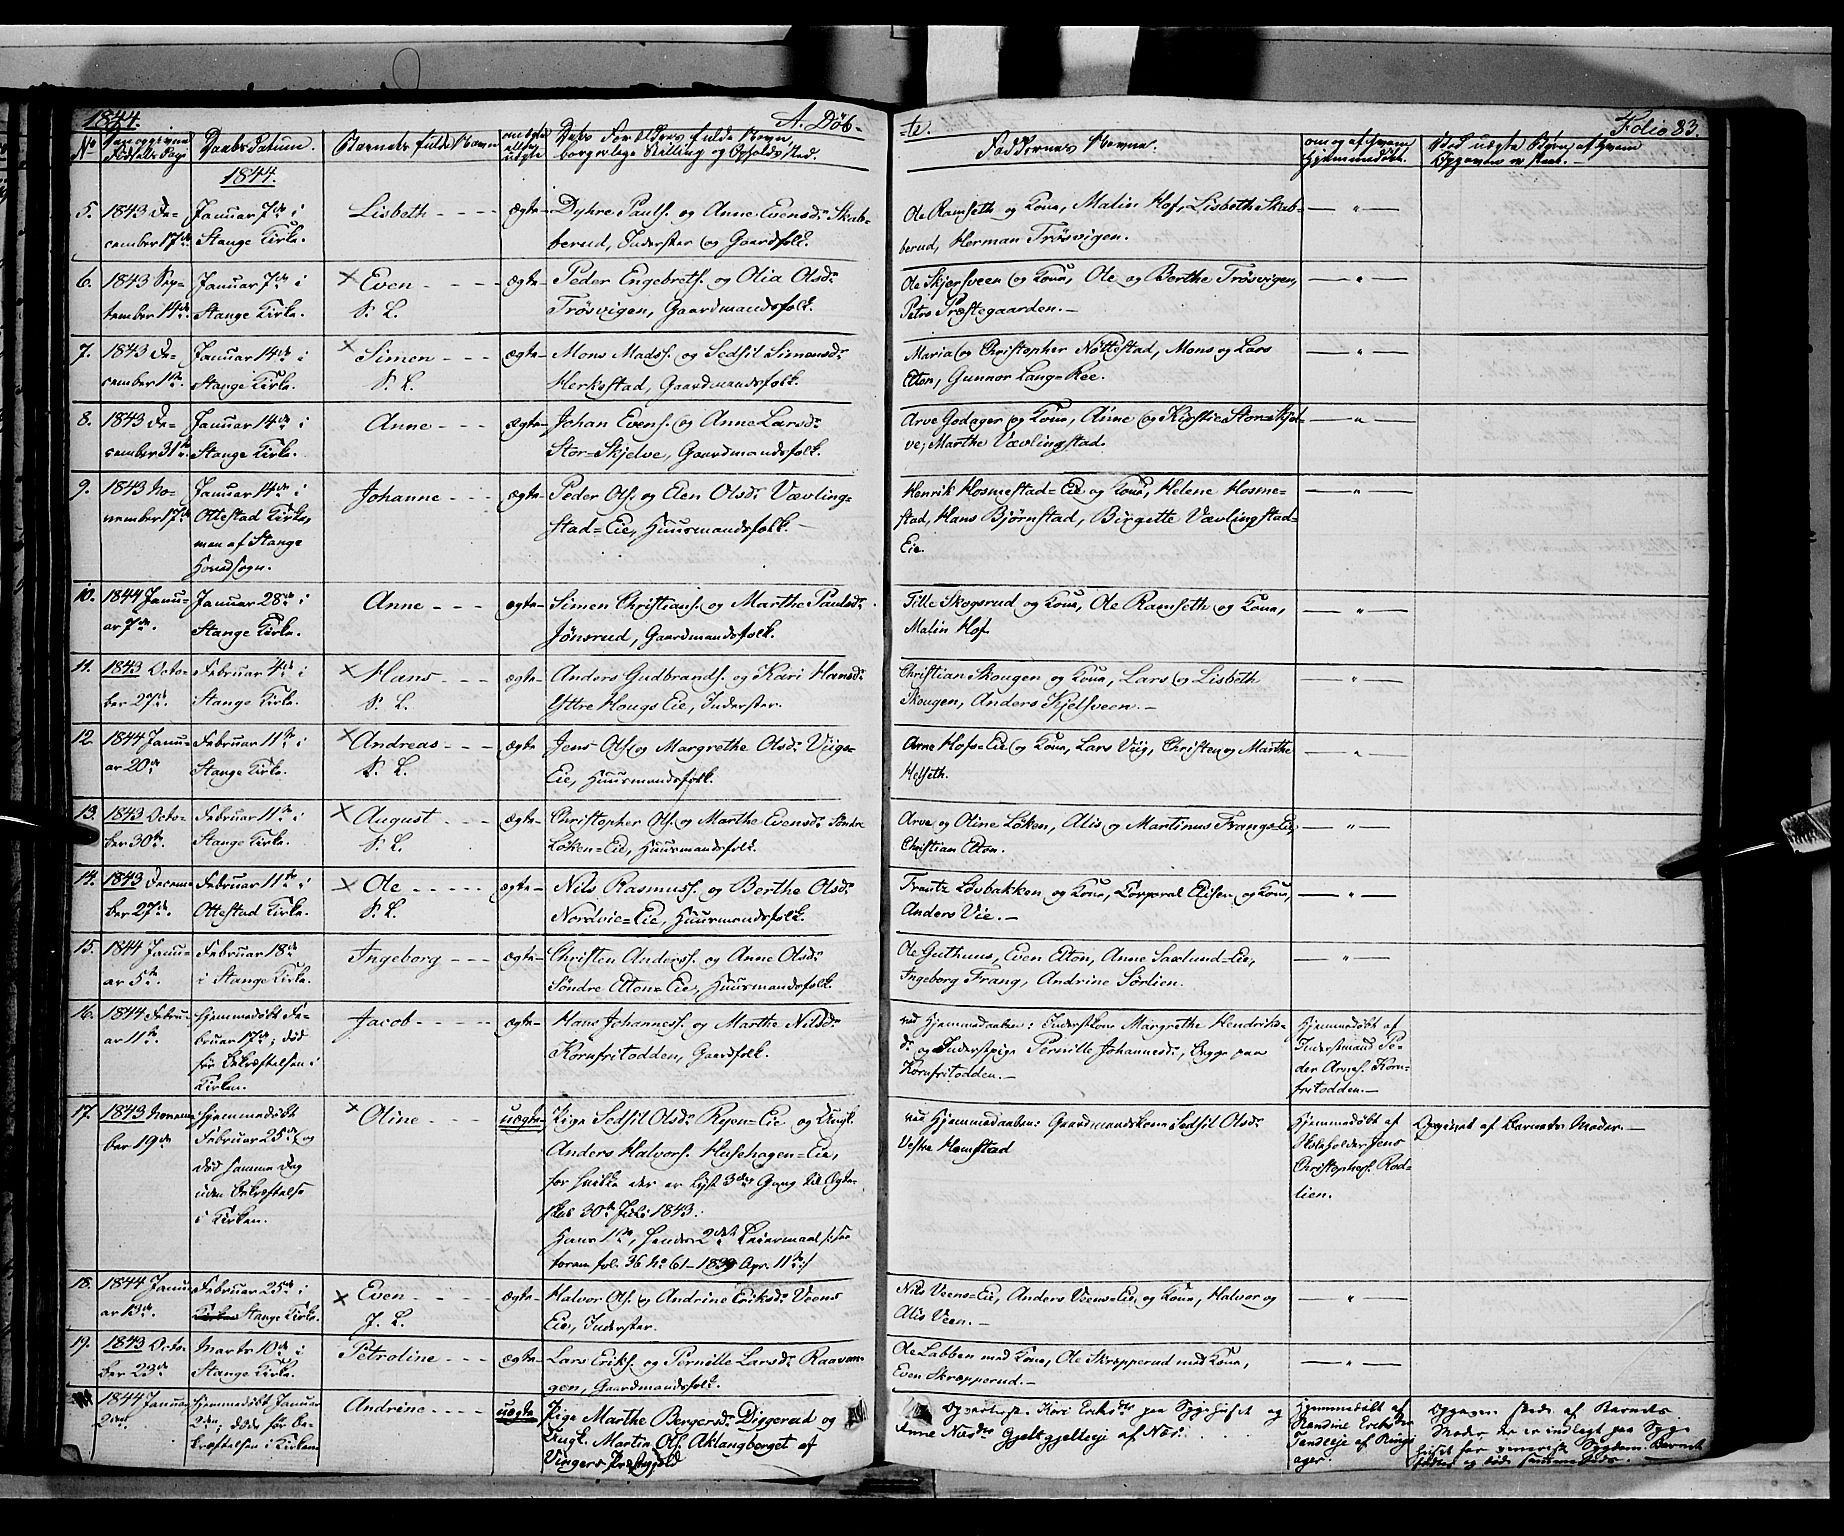 1844.
A. Døb-
te.
Folio 83.
No
Daabs Datum.
Barnets fulde Navn
Faddernes Navne.
1844.
5. 1843 De-
cember 17de
Januar 7de i
Stange Kirke.
Lisbeth
ægte
Dyhre Pauls. og Anne Evensdr Skab-
berud, Inderster og Gaardfolk.
Ole Ramseth og Kone, Malin Hof, Lisbeth Skab-
berud, Herman Trøsvigen.
6. 1843 Sep-
tember 14de
Januar 7de i
Stange Kirke.
× Even
S. L.
ægte
Peder Engebrets. og Olia Olsdr
Trøsvigen, Gaardmandsfolk.
Ole Skjørsveen og Kone, Ole og Berthe Trøsvigen,
Petro Præstegaarden.
7. 1843 De-
cember 1ste
Januar 14de i
Stange Kirke.
× Simen
S. L.
ægte
Mons Mads. og Sedsil Simensdr
Herkstad, Gaardmandsfolk.
Maria og Christopher Nøttestad, Mons og Lars
Etton, Gunnor Lange-Ree.
8. 1843 De-
cember 31te
Januar 14de i
Stange Kirke.
Anne
ægte
Johan Evens. og Anne Larsdr
Stor-Skjelve, Gaardmandsfolk.
Arve Godager og Kone, Anne og Kirstie Stor-Skjel-
ve, Marthe Vævlingstad.
9. 1843 No-
vember 17de
Januar 14de i
Ottestad Kirke,
men af Stange
Hovedsogn.
Johanne
ægte
Peder Ols. og Elen Olsdr Vævling-
stad-Eie, Huusmandsfolk.
Henrik Hosmestad-Eie og Kone, Helene Hosme-
stad, Hans Bjørnstad, Birgitte Vævlingstad-
Eie.
10. 1844 Janu-
ar 7de.
Januar 28de i
Stange Kirke.
Anne
ægte
Simen Christians. og Marthe Paulsdr
Jønsrud, Gaardmandsfolk.
Tille Skogsrud og Kone, Ole Ramseth og Kone,
Malin Hof.
11. 1843 Octo-
ber 27de
Februar 4de i
Stange Kirke.
× Hans
S. L.
ægte
Anders Gudbrands. og Kari Hansdr
Yttre Hougs Eie, Inderster.
Christian Skougen og Kone, Lars og Lisbeth
Skougen, Anders Kjelsveen.
12. 1844 Janu-
ar 20de
Februar 11te i
Stange Kirke.
× Andreas
S. L.
ægte
Jens Ols. og Margrethe Olsdr Viigs-
Eie, Huusmandsfolk.
Arne Hofs-Eie og Kone, Lars Viig, Christen og Marthe
Helseth.
13. 1843 Octo-
ber 30te.
Februar 11te i
Stange Kirke.
× August
S. L.
ægte
Christopher Ols. og Marthe Evensdr Søndre
Løken-Eie, Huusmandsfolk.
Arve og Oline Løken, Alis og Martinus Frangs-Eie,
Christian Etton.
14. 1843 Decem-
ber 27de.
Februar 11te i
Ottestad Kirke.
× Ole
S. L.
ægte
Nils Rasmuss. og Berthe Olsdr
Nordvie-Eie, Huusmandsfolk.
Frantz Løvbakken og Kone, Corporal Elisen og Kone,
Anders Vie.
15. 1844 Janu-
ar 5te.
Februar 18de
i Stange Kirke.
Ingeborg
ægte
Christen Anders. og Anne Olsdr
Søndre Etton-Eie, Huusmandsfolk.
Ole Guthuus, Even Etton, Anne Saxlund-Eie,
Ingeborg Frang, Andrine Sørlien.
16. 1844 Febru-
ar 11te.
Hjemmedøbt Fe-
bruar 17de; død
før Bekræftelsen i
Kirken.
Jacob
ægte
Hans Johanness. og Marthe Nilsdr
Kornfritodden, Gaardfolk.
ved Hjemmedaaben: Inderstkone Margrethe Hendriks-
dr og Inderstpige Pernille Johannesdr, begge paa
Kornfritodden.
Hjemmedøbt af
Inderstmand Pe-
der Arnes. Korn-
fritodden.
17. 1843 Novem-
ber 19de
Hjemmedøbt
Februar 25de og
død samme Dag
uden Bekræftelse
i Kirken.
× Oline
uægte
Pige Sedsil Olsdr Ryen-Eie og Ungk.
Anders Halvors. Husehagen-Eie,
for hvilke der er lyst 3die Gang til Ægte-
skab 30te Juli 1843.
Hans 1ste, hendes 2det Leiermaal /: see
foran fol. 36 No 61- 1839 Apr. 11te :/
ved Hjemmedaaben: Gaardmandskone Sedsil Olsdr
Vestre Hemstad
Hjemmedøbt af
Skoleholder Jens
Christophers. Rod-
lien.
Opgivet af Barnets Moder.
18. 1844 Janu-
ar 13de
Februar 25de i
Stange Kirke.
× Even
J. L.
ægte
Halvor Ols. og Andrine Eriksdr Veens
Eie, Inderster.
Nils Veens-Eie, Anders Veens-Eie og Kone, Halvor og
Alis Veen.
19. 1843 Octo-
ber 23de
Marts 10de i
Stange Kirke.
Petroline
ægte
Lars Eriks. og Pernille Larsdr Raavan-
gen, Gaardmandsfolk.
Ole Labben med Kone, Ole Skræpperud med Kone,
Even Skræpperud.
1844 Januar
2den
Hjemmedøbt Januar
2den, døde før Be-
kræftelsen i Kirken
Andrine
uægte
Pige Marthe Bergersdr Diggerud og
Ungk. Martin Ols. Aklangberget af
Vingers Præstegjeld
Kari Eriksdr paa Sygehuset og
Anne Nædr af Næs.
Hjemmedøbt af
Randine Eriksdr
af Rings-
ager.
Opgaven skede af Barnets
Moder der er indlagt paa Syge
huset for venerisk Sygdom. Barnet